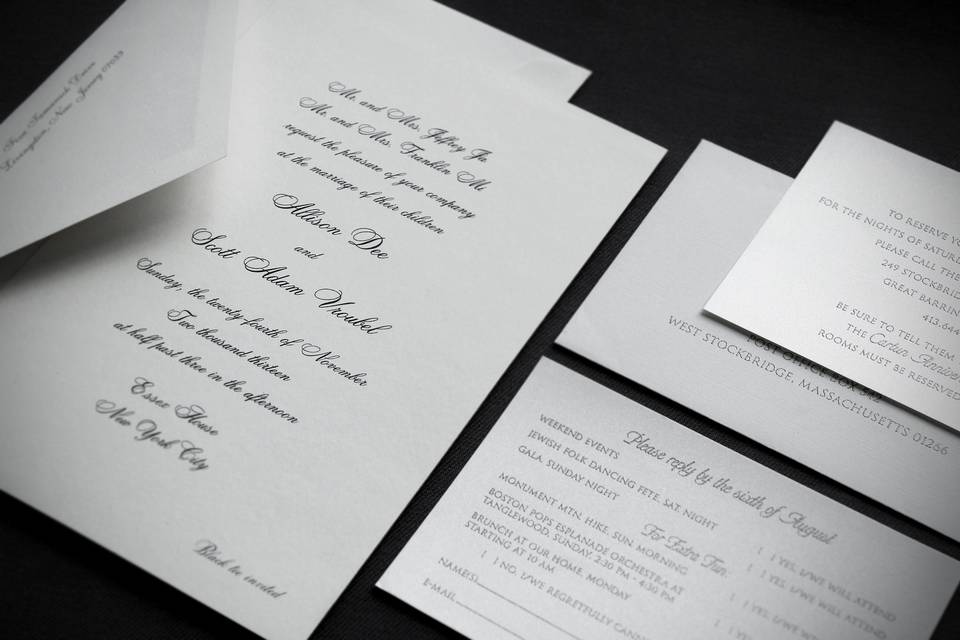 Lexington, New Jersey 07033
Mr. and Mrs. Jeffrey
Mr. and Mrs. Franklin
request the pleasure of your company
at the marriage of their children
Allison Dee
and
Scott Adam Vroubel
Sunday, the twenty-fourth of November
Two thousand thirteen
at half past three in the afternoon
Essex House
New York City
Black tie invited
TO RESERVE
FOR THE NIGHTS OF
PLEASE CALL THE
249
GREAT
413.644
BE SURE TO TELL THEM
THE Cartun
ROOMS MUST BE RESERVED
POST OFFICE BOX
WEST STOCKBRIDGE, MASSACHUSETTS 01266
Please reply by the sixth of August
WEEKEND EVENTS
JEWISH FOLK DANCING FETE, SAT. NIGHT
GALA, SUNDAY NIGHT
For Extra Fun
MONUMENT MTN. HIKE, SUN. MORNING
BOSTON POPS ESPLANADE ORCHESTRA AT
TANGLEWOOD, SUNDAY, 2:30 PM - 4:30 PM
BRUNCH AT OUR HOME, MONDAY
STARTING AT 10 AM
[ ] YES, I/WE WILL ATTEND
[ ] YES, I/WE WILL ATTEND
[ ] YES, I/WE WILL
[ ] YES, I/WE
[ ] NO, I/WE REGRETFULLY
NAME(S)
E-MAIL